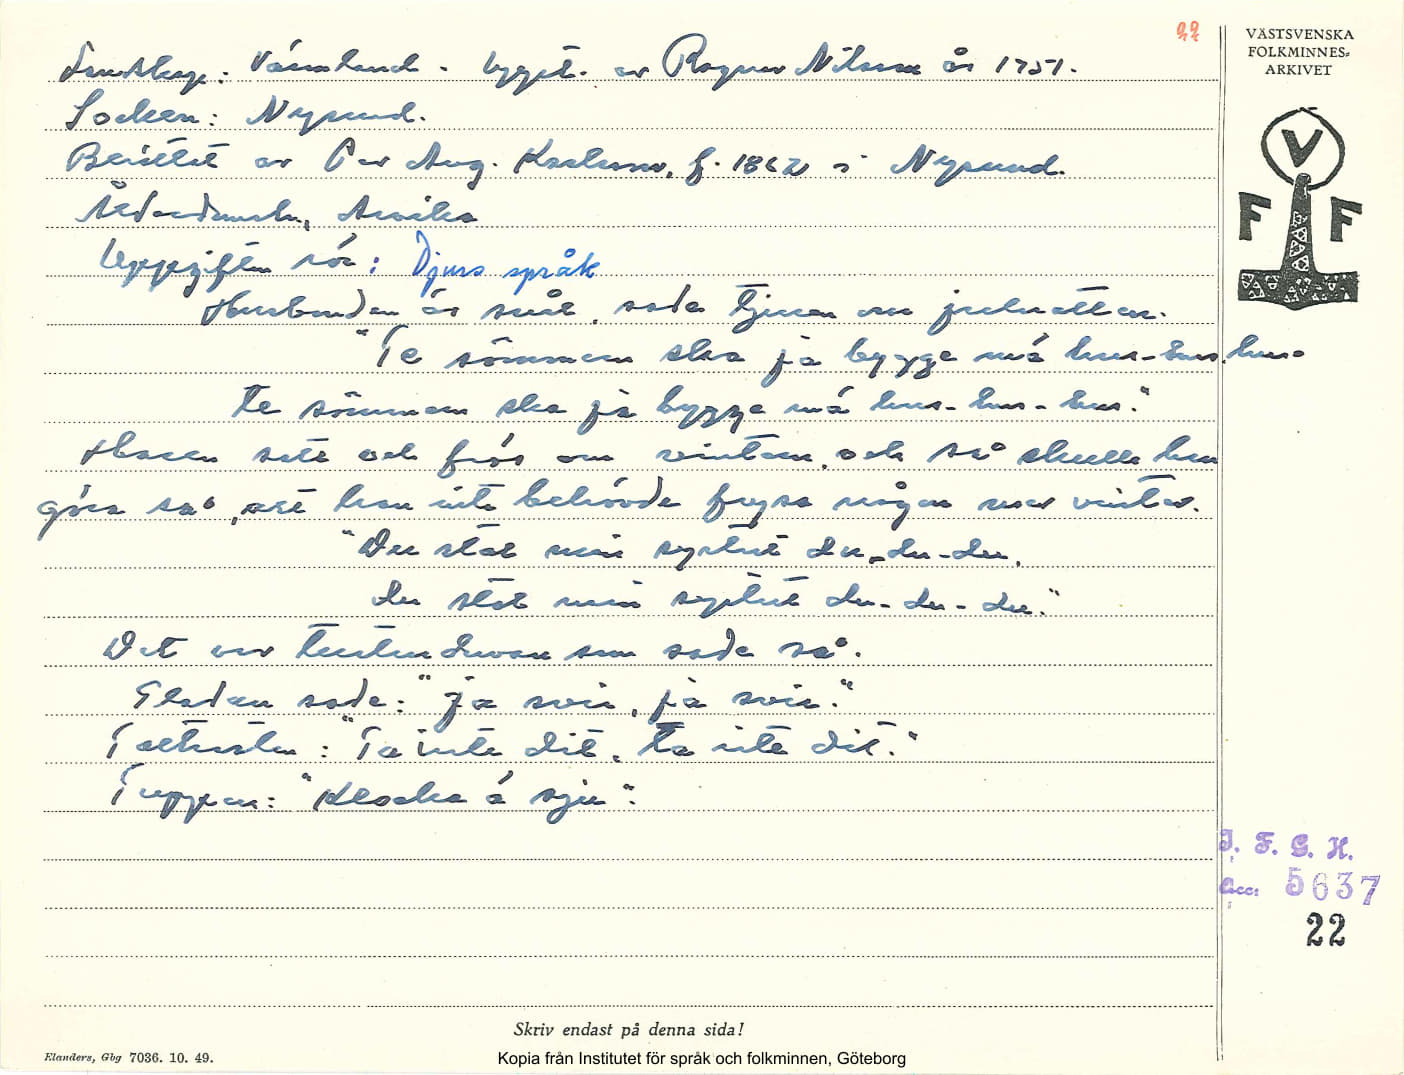 22
VÄSTSVENSKA
FOLKMINNES=
ARKIVET
V
F F
Landskap: Värmland. Uppt. av Ragnar Nilsson år 1951.
Socken: Nysund.
Berättat av Per Aug. Karlsson, f. 1862 i Nysund.
Arvika
Uppgiften rör: Djurs språk
Husbonden är snål, sade tjuren om julnatten.
"Te sömmarn ska ja bygge må hus-hus-hus.
te sömmarn ska ja bygge må hus-hus-hus."
Haren satt och frös om vintern, och så skulle han
göra så, att han inte behövde frysa någon mer vinter.
"Du stal min sytut du-du-du,
du stal min sytut du-du-du."
Det var turturduvan som sade så.
Gladan sade: "Ja svir, ja svir."
Talltrasten: "Ta inte dit, ta inte dit."
Tuppen: "Klocka á sju".
I. F. G. H.
Acc: 5637
22
Skriv endast på denna sida!
Elanders, Gbg 7036. 10. 49.
Kopia från Institutet för språk och folkminnen, Göteborg